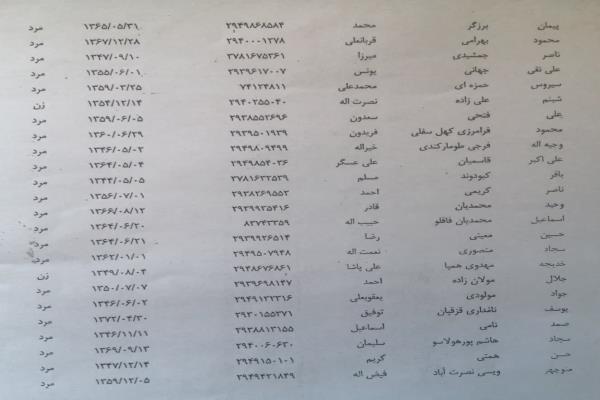 پیمان برزگر محمد ۲۹۴۹۸۶۸۵۸۴ ۱۳۶۵/۰۵/۳۱ مرد
محمود بهرامی قربانعلی ۲۹۴۰۰۰۱۲۷۸ ۱۳۶۷/۱۲/۲۸ مرد
ناصر جمشیدی میرزا ۳۷۸۱۶۷۵۳۶۱ ۱۳۴۷/۰۹/۱۰ مرد
علی نقی جهانی یونس ۲۹۳۹۶۱۷۰۰۷ ۱۳۵۵/۰۶/۰۱ مرد
سیروس حمزه ای محمدعلی ۷۴۱۲۴۸۱۱ ۱۳۵۹/۰۳/۲۵ مرد
شبنم علی زاده نصرت اله ۲۹۴۰۲۵۵۰۴۰ ۱۳۵۴/۱۲/۱۴ زن
علی فتحی سعدون ۲۹۳۸۵۵۲۶۹۶ ۱۳۵۹/۰۶/۰۵ مرد
محمود فرامرزی کهل سفلی فریدون ۲۹۳۹۵۰۱۹۳۹ ۱۳۶۰/۰۶/۲۹ مرد
وجیه اله فرجی طومارکندی خیراله ۲۹۴۹۸۰۹۴۹۹ ۱۳۴۶/۰۵/۰۲ مرد
علی اکبر قاسمیان علی عسگر ۲۹۴۹۸۵۴۰۳۶ ۱۳۶۴/۰۵/۰۴ مرد
باقر کبودوند مسلم ۳۷۸۱۶۳۲۵۳۹ ۱۳۴۴/۰۵/۰۵ مرد
ناصر کریمی احمد ۲۹۳۸۲۶۹۵۵۲ ۱۳۵۶/۰۷/۰۱ مرد
وحید محمدیان قادر ۲۹۳۹۹۳۵۴۱۶ ۱۳۶۶/۰۸/۱۲ مرد
اسماعیل محمدیان قاقلو حبیب اله ۸۳۷۴۳۳۵۹ ۱۳۶۴/۰۶/۲۰ مرد
حسین معینی رضا ۲۹۳۹۹۲۶۵۱۴ ۱۳۶۴/۰۶/۲۱ مرد
سجاد منصوری نعمت اله ۲۹۴۹۵۰۷۹۴۸ ۱۳۶۲/۰۱/۰۱ مرد
خدیجه مهدوی همپا علی پاشا ۲۹۴۸۶۷۶۸۶۱ ۱۳۴۹/۰۸/۰۴ زن
جلال مولان زاده احمد ۲۹۳۹۶۹۸۱۴۷ ۱۳۵۰/۰۷/۰۷ مرد
جواد مولودی یعقوبعلی ۲۹۴۹۱۲۲۳۱۶ ۱۳۴۶/۰۶/۰۲ مرد
یوسف نامداری قزقپان توفیق ۲۹۳۰۱۵۵۲۷۱ ۱۳۷۲/۰۴/۳۰ مرد
صمد نامی اسماعیل ۲۹۳۸۸۱۳۱۵۵ ۱۳۴۶/۱۱/۱۱ مرد
سجاد هاشم پورهولاسو سلیمان ۲۹۴۰۰۶۰۶۲۰ ۱۳۶۹/۰۹/۱۳ مرد
حسن همتی کریم ۲۹۴۹۱۵۰۱۰۱ ۱۳۴۷/۱۲/۱۴ مرد
منوچهر ویسی نصرت آباد فیض اله ۲۹۴۹۴۲۱۸۴۹ ۱۳۵۹/۱۲/۰۵ مرد